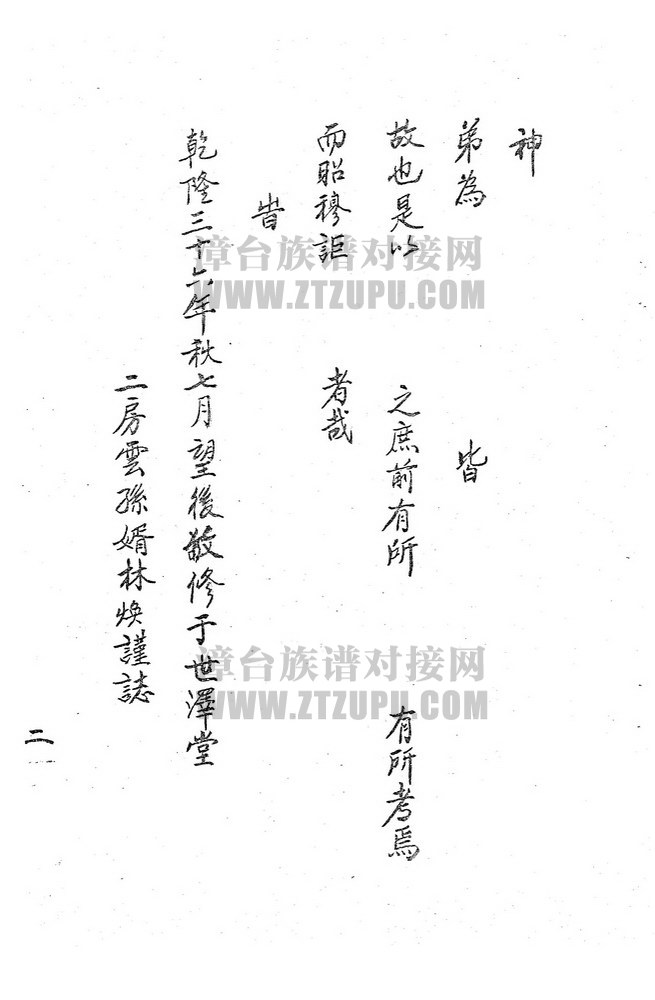 神
弟為 皆
故也是以 之庶前有所 有所考焉
而昭穆詎 者哉
旹
乾隆三十六年秋七月望後敬修于世澤堂
二房雲孫婿林煥謹誌
二
漳台族谱对接网
WWW.ZTZUPU.COM
漳台族谱对接网
WWW.ZTZUPU.COM